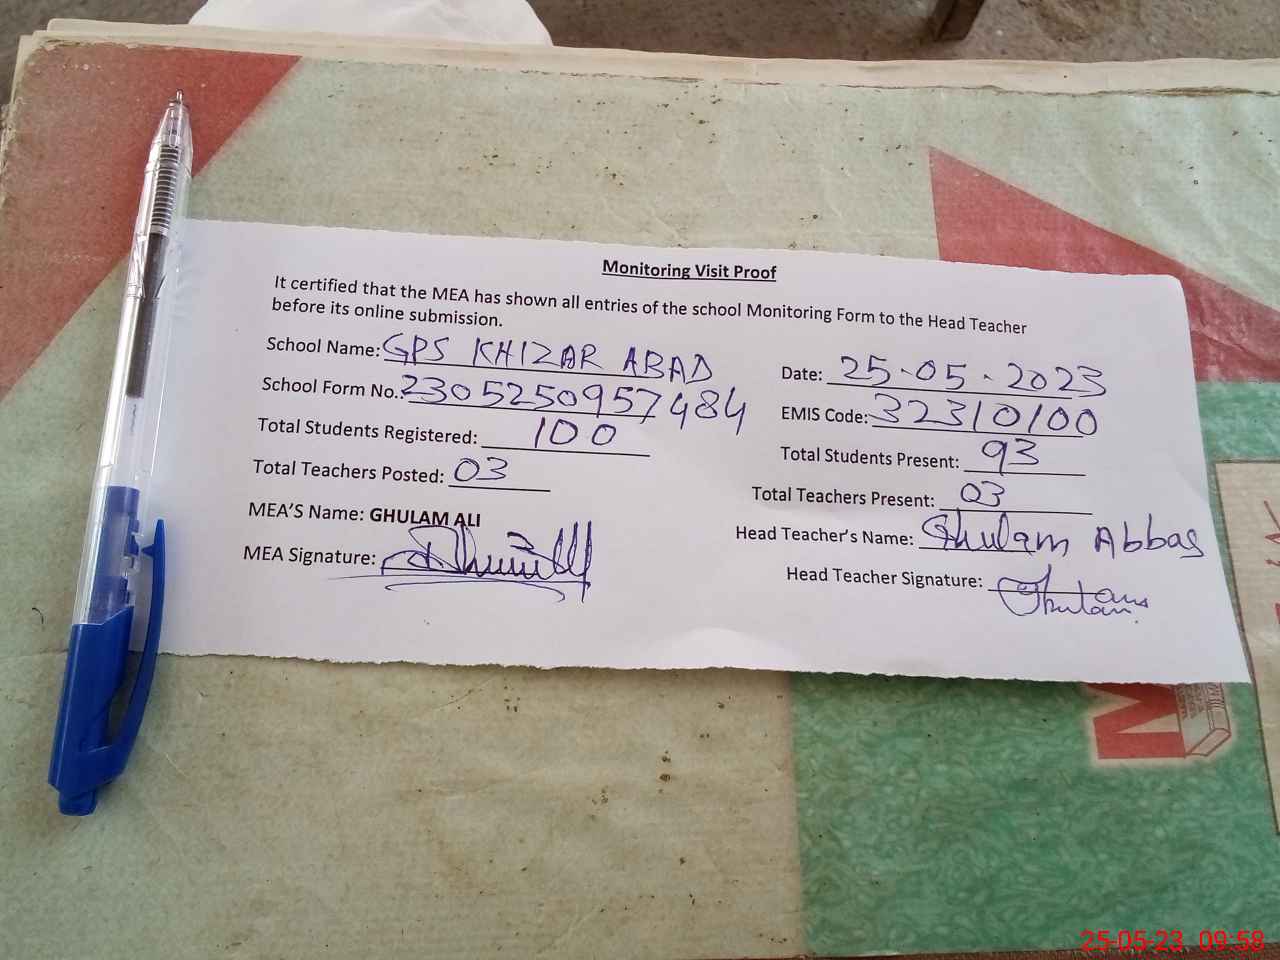 Monitoring Visit Proof
It certified that the MEA has shown all entries of the school Monitoring Form to the Head Teacher
before its online submission.
School Name: GPS KHIZAR ABAD
Date: 25-05-2023
School Form No.: 2305250957484
EMIS Code: 32310100
Total Students Registered: 100
Total Students Present: 93
Total Teachers Posted: 03
Total Teachers Present: 03
MEA'S Name: GHULAM ALI
Head Teacher's Name: Ghulam Abbas
MEA Signature:
Head Teacher Signature:
M
25-05-23 09:58